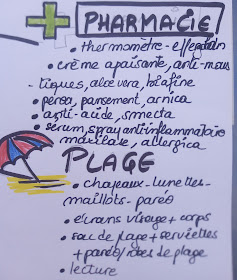 PHARMACIE
• thermomètre - efferalgan
• crème apaisante, anti-mous
-tiques, aloe vera, biafine
• perea, pansement, arnica
• anti-acide, smecta
• sérum, spray anti-inflammatoire
allergica
PLAGE
• chapeaux - lunettes -
maillots - paréo
• écrans visage + corps
• sac de plage + serviettes
+ paréo/robes de plage
• lecture